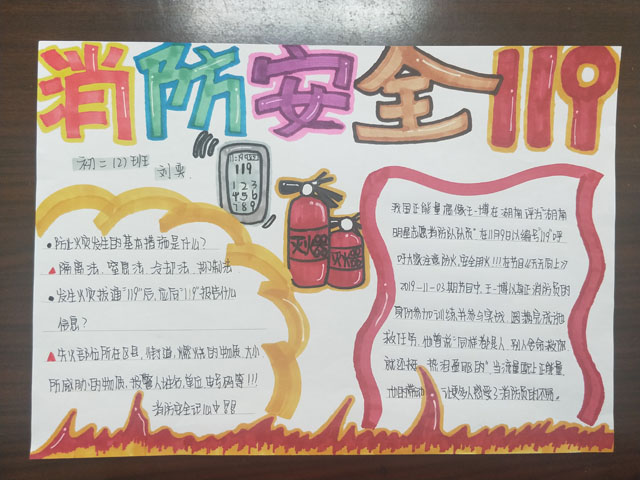 消防安全119
初二(2)班
刘雯
119
1 2 3
4 5 6
7 8 9
灭火器
灭火器
防止火灾发生的基本措施是什么?
隔离法、窒息法、冷却法、抑制法
发生火灾拨通"119"后,应向"119"报告什么
信息?
失火部位所在区县,街道,燃烧的物质,大小
所威胁的物质,报警人姓名,单位,电话号码等!!!
消防安全记心中
我国正能量偶像王一博在湖南评为"湖南
明星志愿消防队队员"在11月9日以编号"119"呼
吁大家注意防火,安全用火!!!在节目《天天向上》
2019-11-03期节目中,王一博以真正消防员的
身份参加训练并参与实战,圆满完成扑
救任务。他曾说"同样都是人,别人舍命救你
就还挨
的",当流量遇上正能量,
他的带动
让更多人感受了消防员的不易。